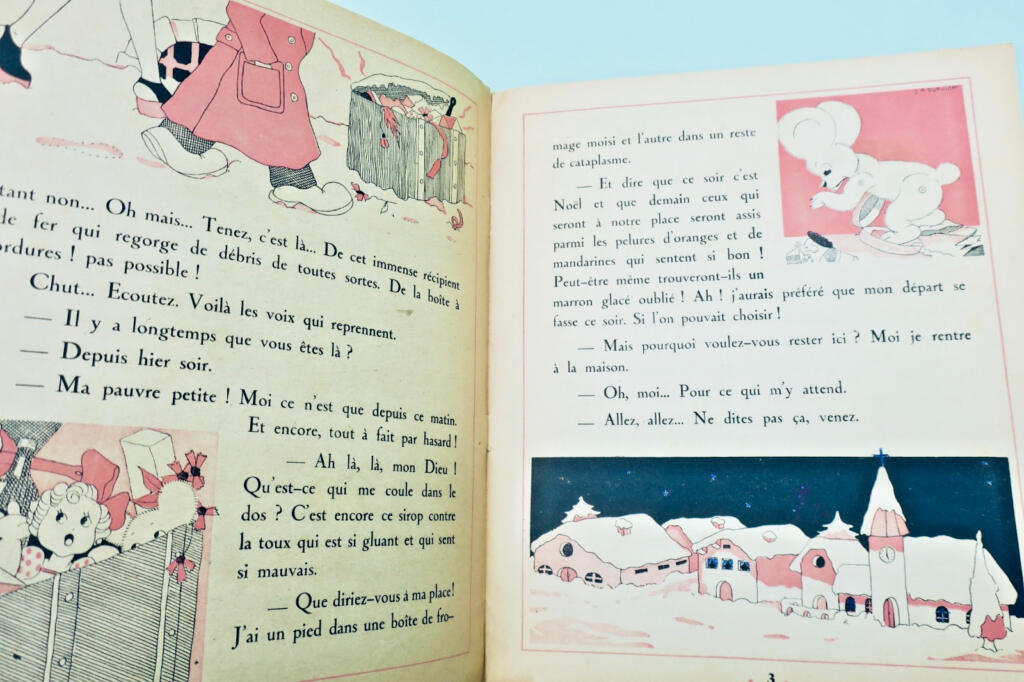 tant non... Oh mais... Tenez, c'est là... De cet immense récipient
de fer qui regorge de débris de toutes sortes. De la boîte à
ordures ! pas possible !
Chut... Ecoutez. Voilà les voix qui reprennent.
— Il y a longtemps que vous êtes là ?
— Depuis hier soir.
— Ma pauvre petite ! Moi ce n'est que depuis ce matin.
Et encore, tout à fait par hasard !
— Ah là, là, mon Dieu !
Qu'est-ce qui me coule dans le
dos ? C'est encore ce sirop contre
la toux qui est si gluant et qui sent
si mauvais.
— Que diriez-vous à ma place!
J'ai un pied dans une boîte de fro-
mage moisi et l'autre dans un reste
de cataplasme.
— Et dire que ce soir c'est
Noël et que demain ceux qui
seront à notre place seront assis
parmi les pelures d'oranges et de
mandarines qui sentent si bon !
Peut-être même trouveront-ils un
marron glacé oublié ! Ah ! j'aurais préféré que mon départ se
fasse ce soir. Si l'on pouvait choisir !
— Mais pourquoi voulez-vous rester ici ? Moi je rentre
à la maison.
— Oh, moi... Pour ce qui m'y attend.
— Allez, allez... Ne dites pas ça, venez.
3